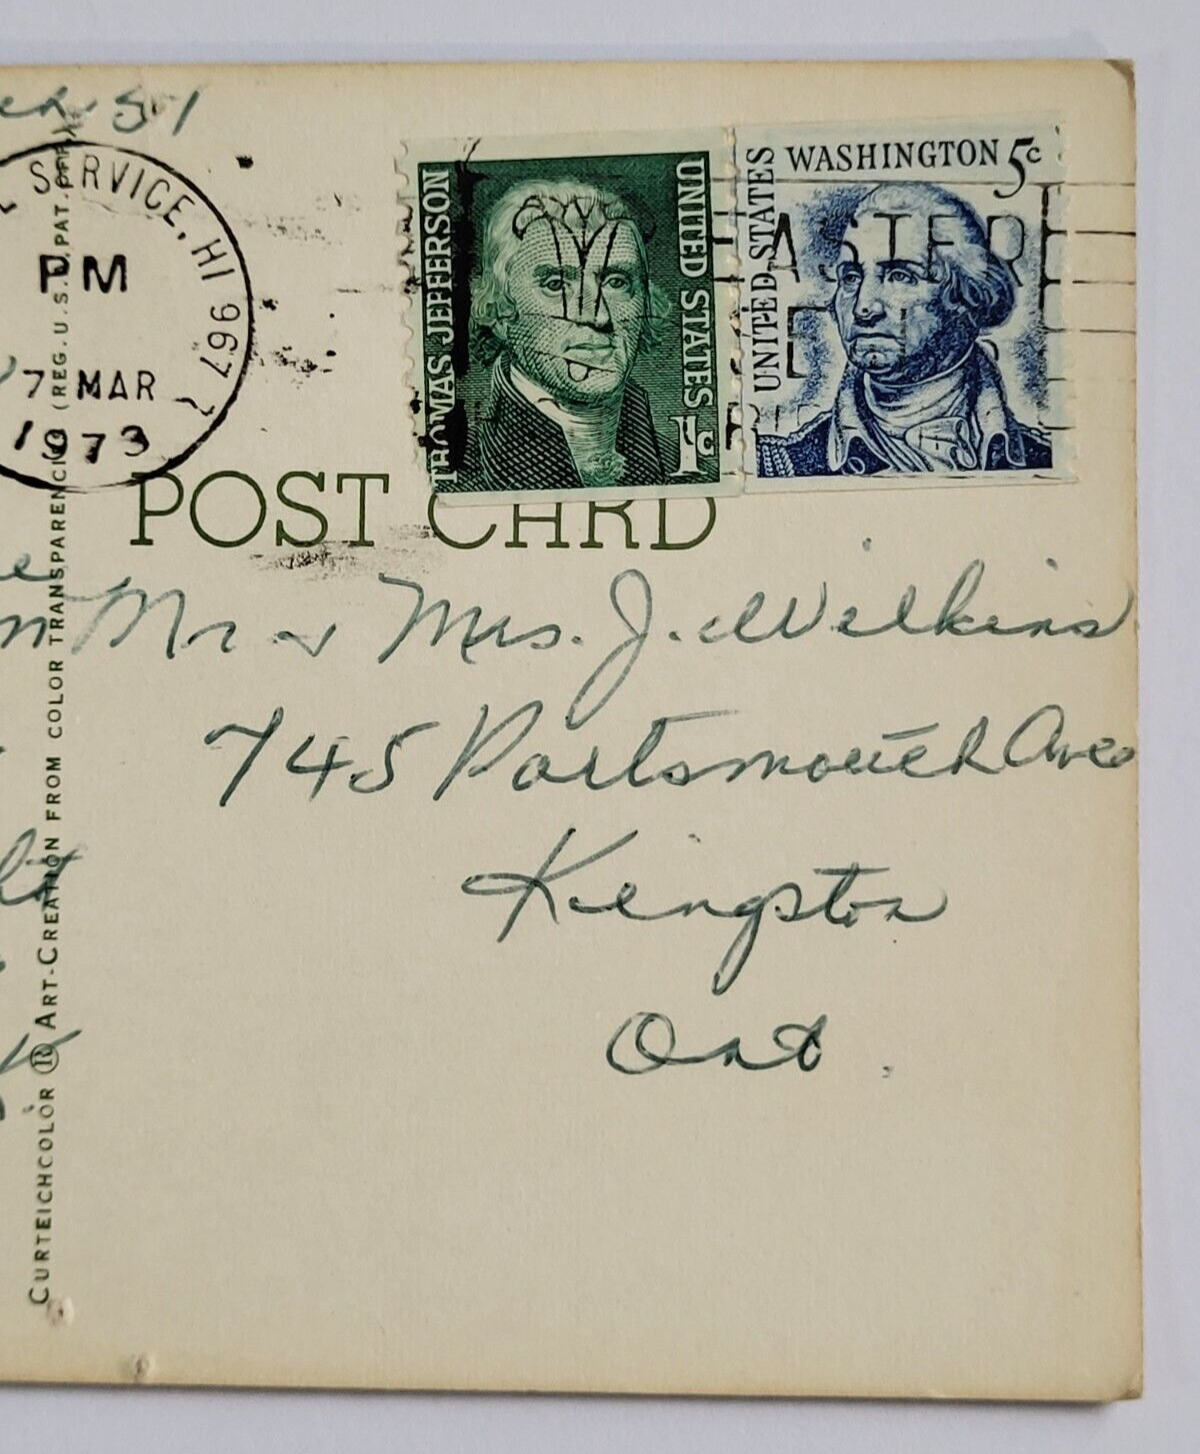 SERVICE, HI 967
PM
7 MAR
1973
THOMAS JEFFERSON
UNITED STATES
1c
UNITED STATES
WASHINGTON 5c
EASTER
POST CARD
Mr & Mrs. J. Wilkins
745 Portsmouth Ave
Kingston
Ont.
CURTEICHCOLOR ® ART-CREATION FROM COLOR TRANSPARENCIES (REG. U.S.A. PAT. OFF.)